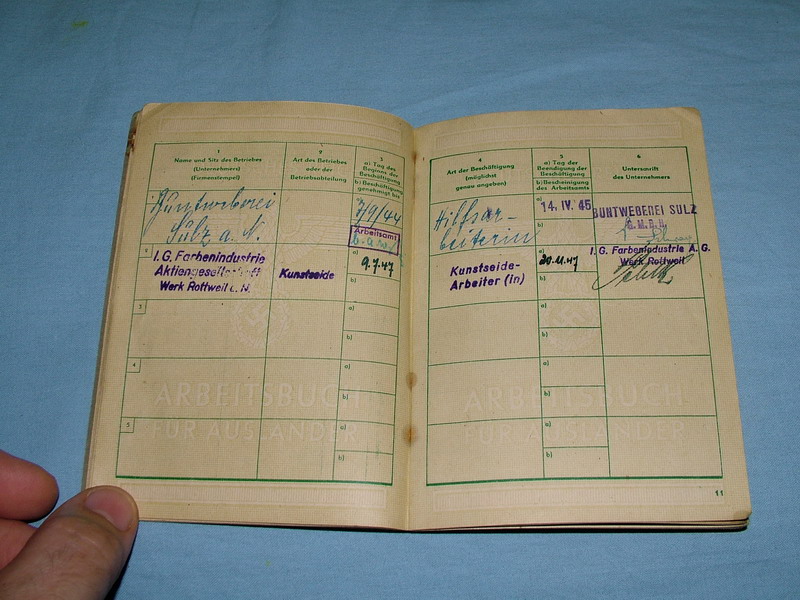 1
Name und Sitz des Betriebes
(Unternehmers)
(Firmenstempel)
2
Art des Betriebes
oder der
Betriebsabteilung
3
a) Tag des
Beginns der
Beschäftigung
b) Beschäftigung
genehmigt bis
4
Art der Beschäftigung
(möglichst
genau angeben)
5
a) Tag der
Beendigung der
Beschäftigung
b) Bescheinigung
des Arbeitsamts
6
Unterschrift
des Unternehmers
Buntweberei
Sulz a. N.
7/9/44
Arbeitsamt
Hilfsar-
beiterin
a)
14. IV. 45
b)
BUNTWEBEREI SULZ
G.M.B.H.
2
I. G. Farbenindustrie
Aktiengesellschaft
Werk Rottweil a. N.
Kunstseide
a)
9.7.47
b)
Kunstseide-
Arbeiter (in)
a)
20.11.47
b)
I. G. Farbenindustrie A. G.
Werk Rottweil
3
a)
b)
a)
b)
4
a)
b)
a)
b)
ARBEITSBUCH
FÜR AUSLÄNDER
ARBEITSBUCH
FÜR AUSLÄNDER
5
a)
b)
a)
b)
11